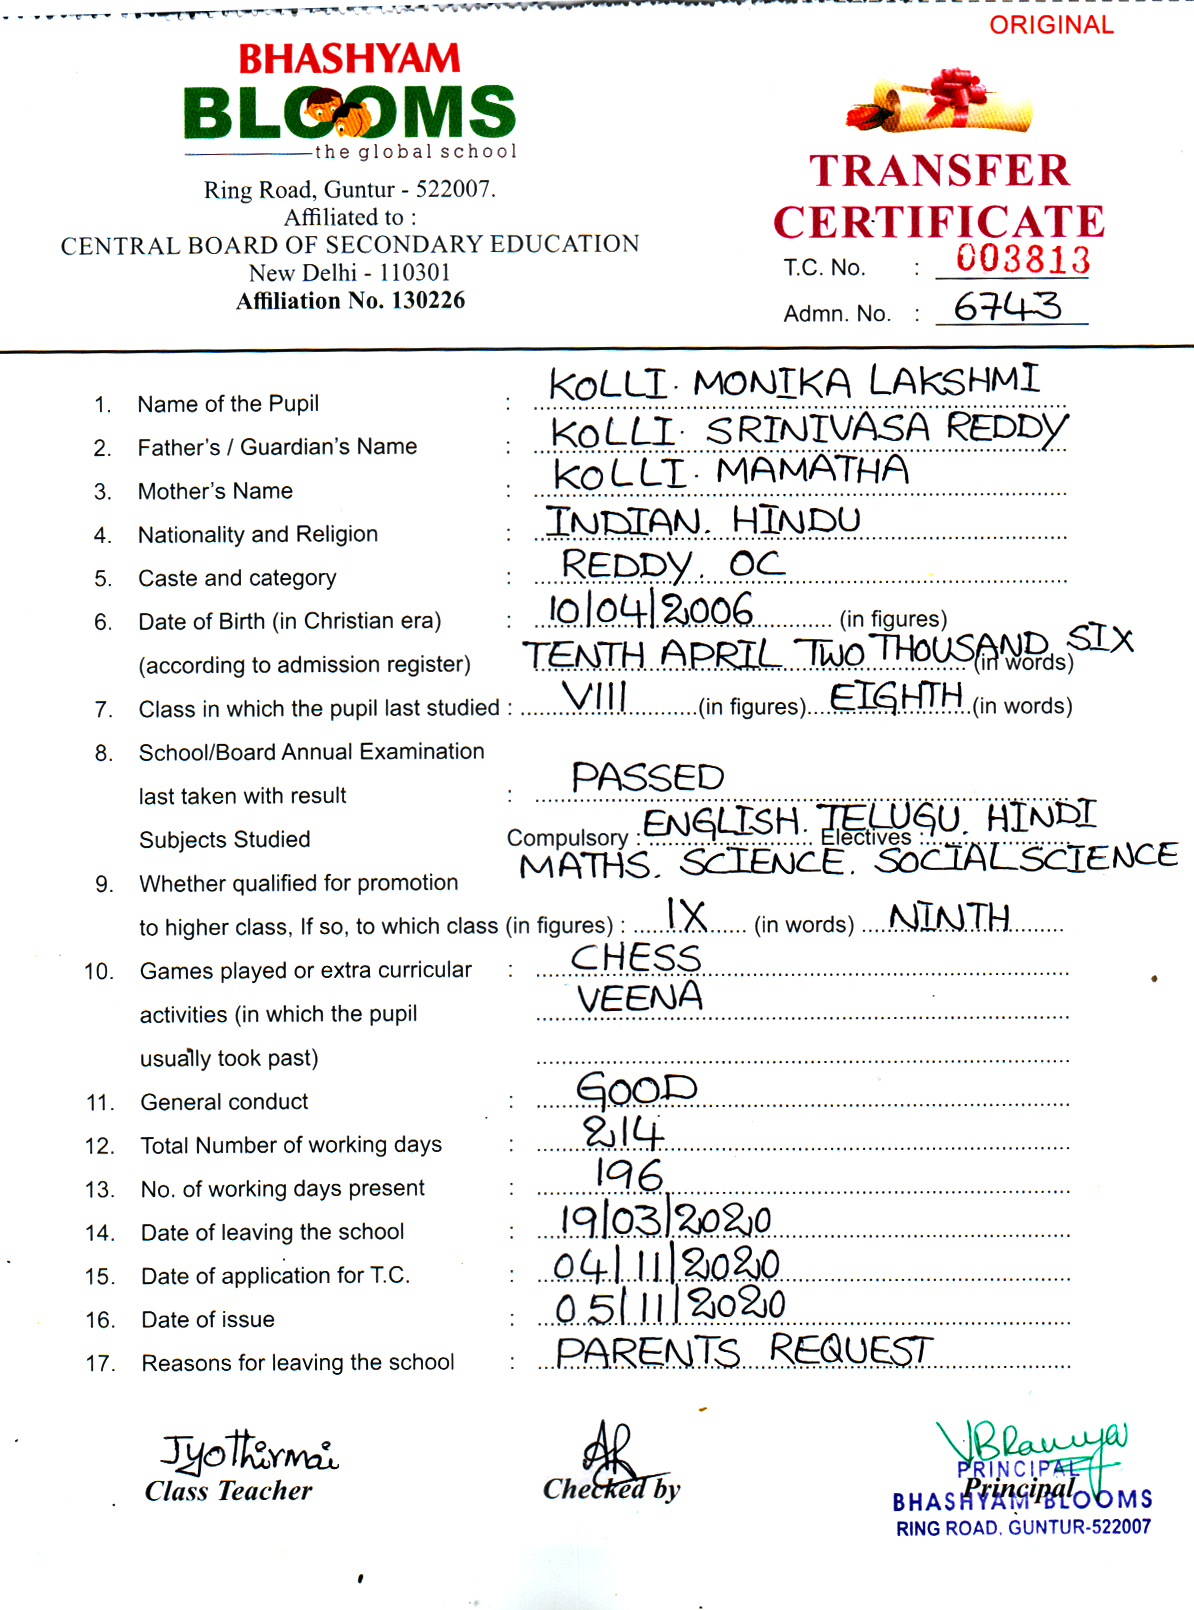 ORIGINAL
BHASHYAM
BLOOMS
the global school
Ring Road, Guntur - 522007.
Affiliated to :
CENTRAL BOARD OF SECONDARY EDUCATION
New Delhi - 110301
Affiliation No. 130226
TRANSFER
CERTIFICATE
T.C. No. : 003813
Admn. No. : 6743
1. Name of the Pupil : KOLLI. MONIKA LAKSHMI
2. Father's / Guardian's Name : KOLLI. SRINIVASA REDDY
3. Mother's Name : KOLLI. MAMATHA
4. Nationality and Religion : INDIAN. HINDU
5. Caste and category : REDDY. OC
6. Date of Birth (in Christian era) : 10/04/2006 (in figures)
(according to admission register) TENTH APRIL TWO THOUSAND SIX (in words)
7. Class in which the pupil last studied : VIII (in figures) EIGHTH (in words)
8. School/Board Annual Examination
last taken with result : PASSED
Subjects Studied Compulsory : ENGLISH. TELUGU. HINDI Electives :
MATHS. SCIENCE. SOCIAL SCIENCE
9. Whether qualified for promotion
to higher class, If so, to which class (in figures) : IX (in words) NINTH
10. Games played or extra curricular : CHESS
activities (in which the pupil VEENA
usually took past)
11. General conduct : GOOD
12. Total Number of working days : 214
13. No. of working days present : 196
14. Date of leaving the school : 19/03/2020
15. Date of application for T.C. : 04/11/2020
16. Date of issue : 05/11/2020
17. Reasons for leaving the school : PARENTS REQUEST
Jyothirmai
Class Teacher
Checked by
PRINCIPAL
Principal
BHASHYAM BLOOMS
RING ROAD, GUNTUR-522007